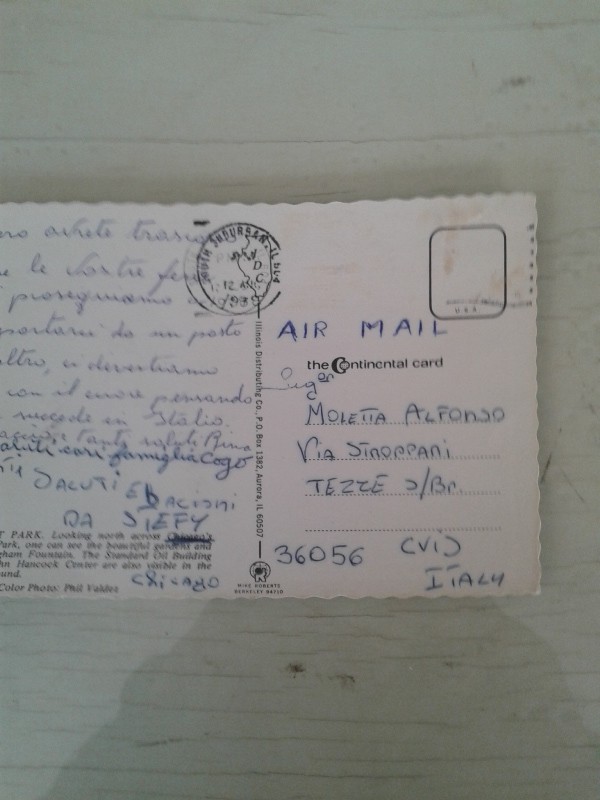 avete
le Vostre
proseguiamo
da un posto
ci divertiamo
con il cuore pensando
succede in Italia
tanti saluti
cari famiglia Cogo
SALUTI E BACIONI
DA STEFY
T PARK. Looking north across Chicago's
Park, one can see the beautiful gardens and
gham Fountain. The Standard Oil Building
hn Hancock Center are also visible in the
und.
Color Photo: Phil Valdez
CHICAGO
SOUTH SUBURBAN, IL 604
PM
12
Illinois Distributing Co., P.O. Box 1382, Aurora, IL 60507
MIKE ROBERTS
BERKELEY 94710
U.S.A.
AIR MAIL
the Continental card
Sigor
MOLETTA ALFONSO
VIA STROPPARI
TEZZE S/Br.
36056 (VI)
ITALY